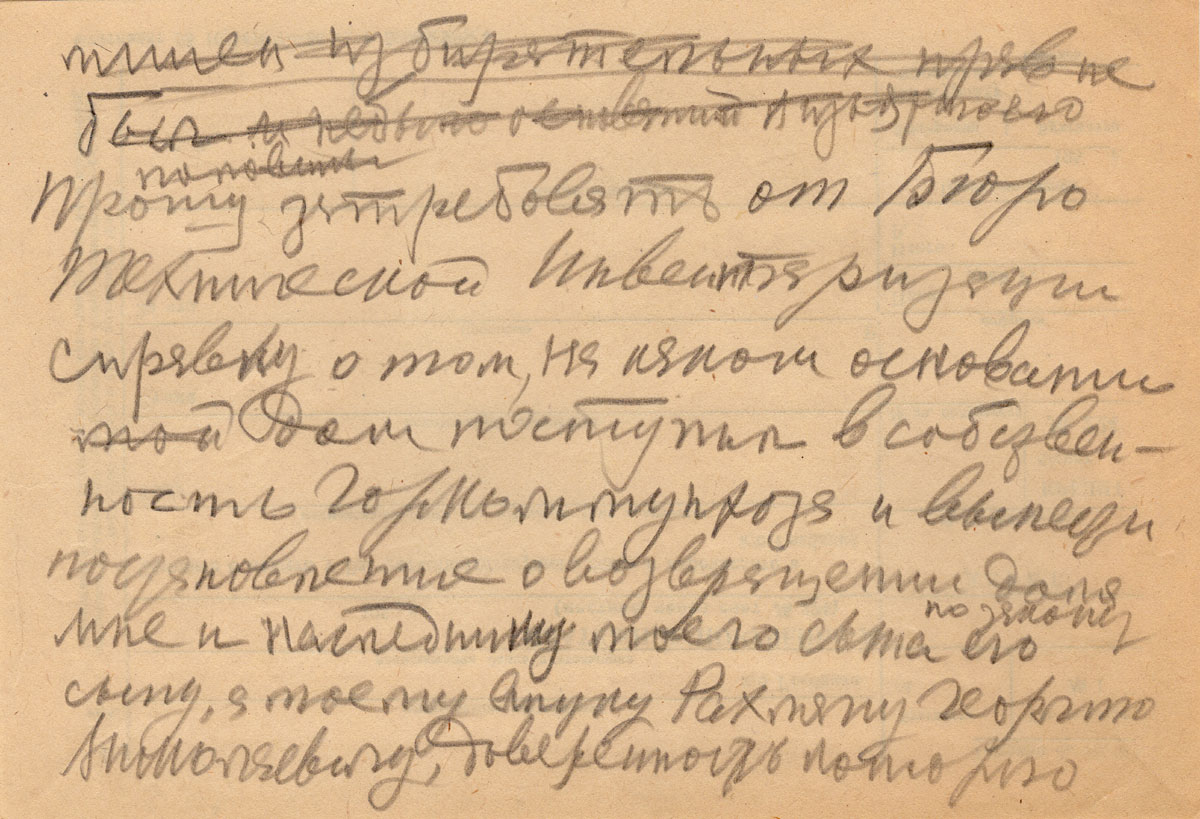 лишен избирательных прав не
был и
половины
Прошу затребовать от Бюро
Технической Инвентаризации
справку о том, на каком основании
мой дом поступил в собствен-
ность Горкоммунхоза и вынести
постановление о возвращении дома
по закону
мне и наследнику моего сына его
сыну, а моему внуку Рахману Георгию
Николаевичу, доверенность которого